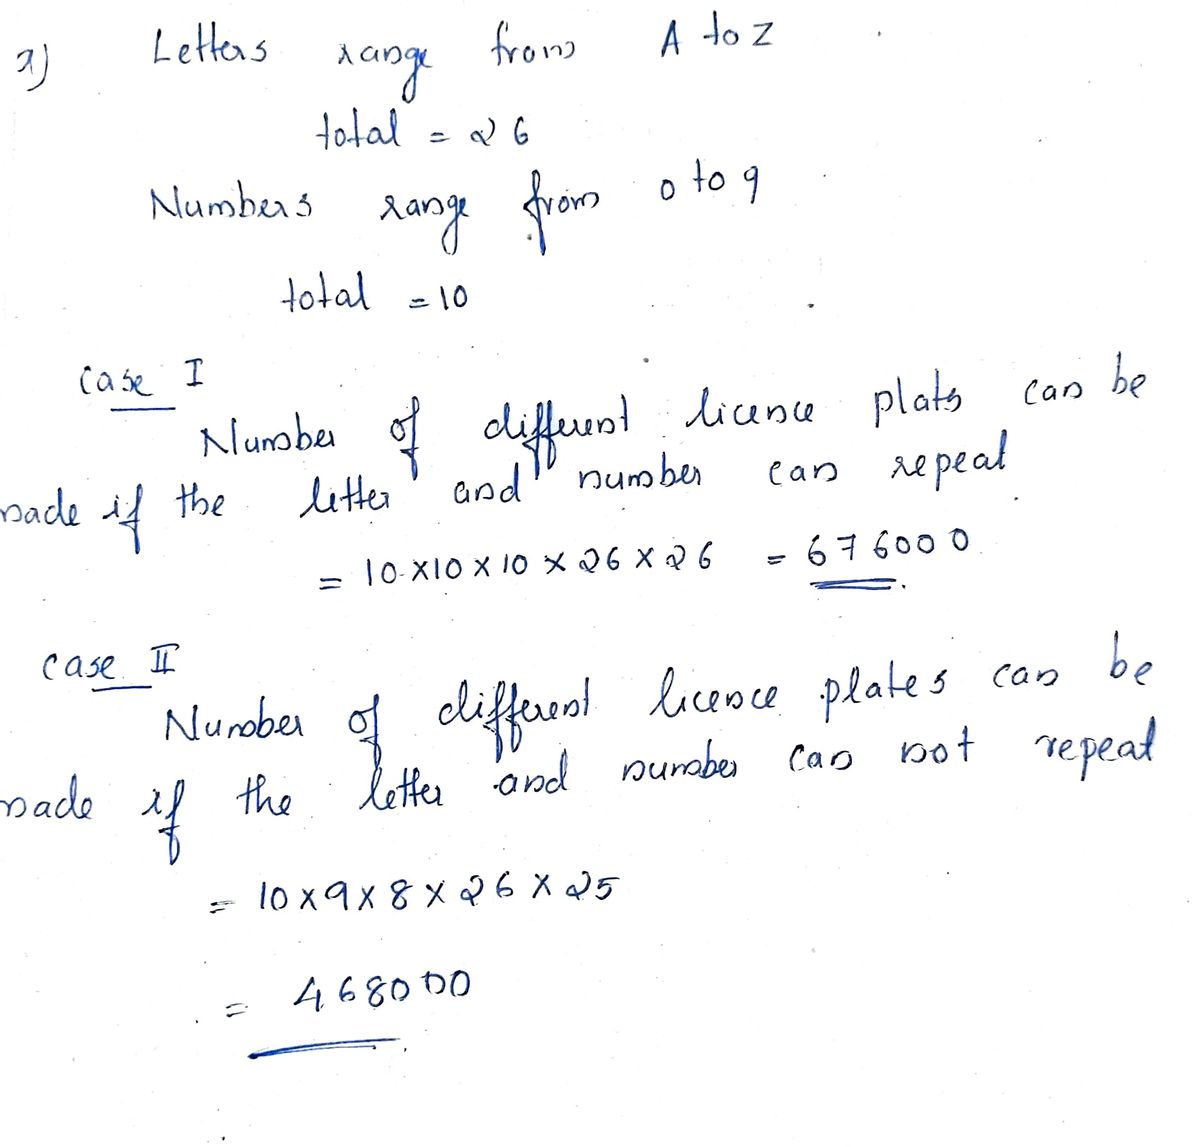 a) Letters range from A to Z
total = 26
Numbers range from 0 to 9
total = 10
case I
Number of different licence plats can be
made if the letter and number can repeat
= 10 x 10 x 10 x 26 x 26 = 676000
case II
Number of different licence plates can be
made if the letter and number can not repeat
= 10 x 9 x 8 x 26 x 25
= 468000